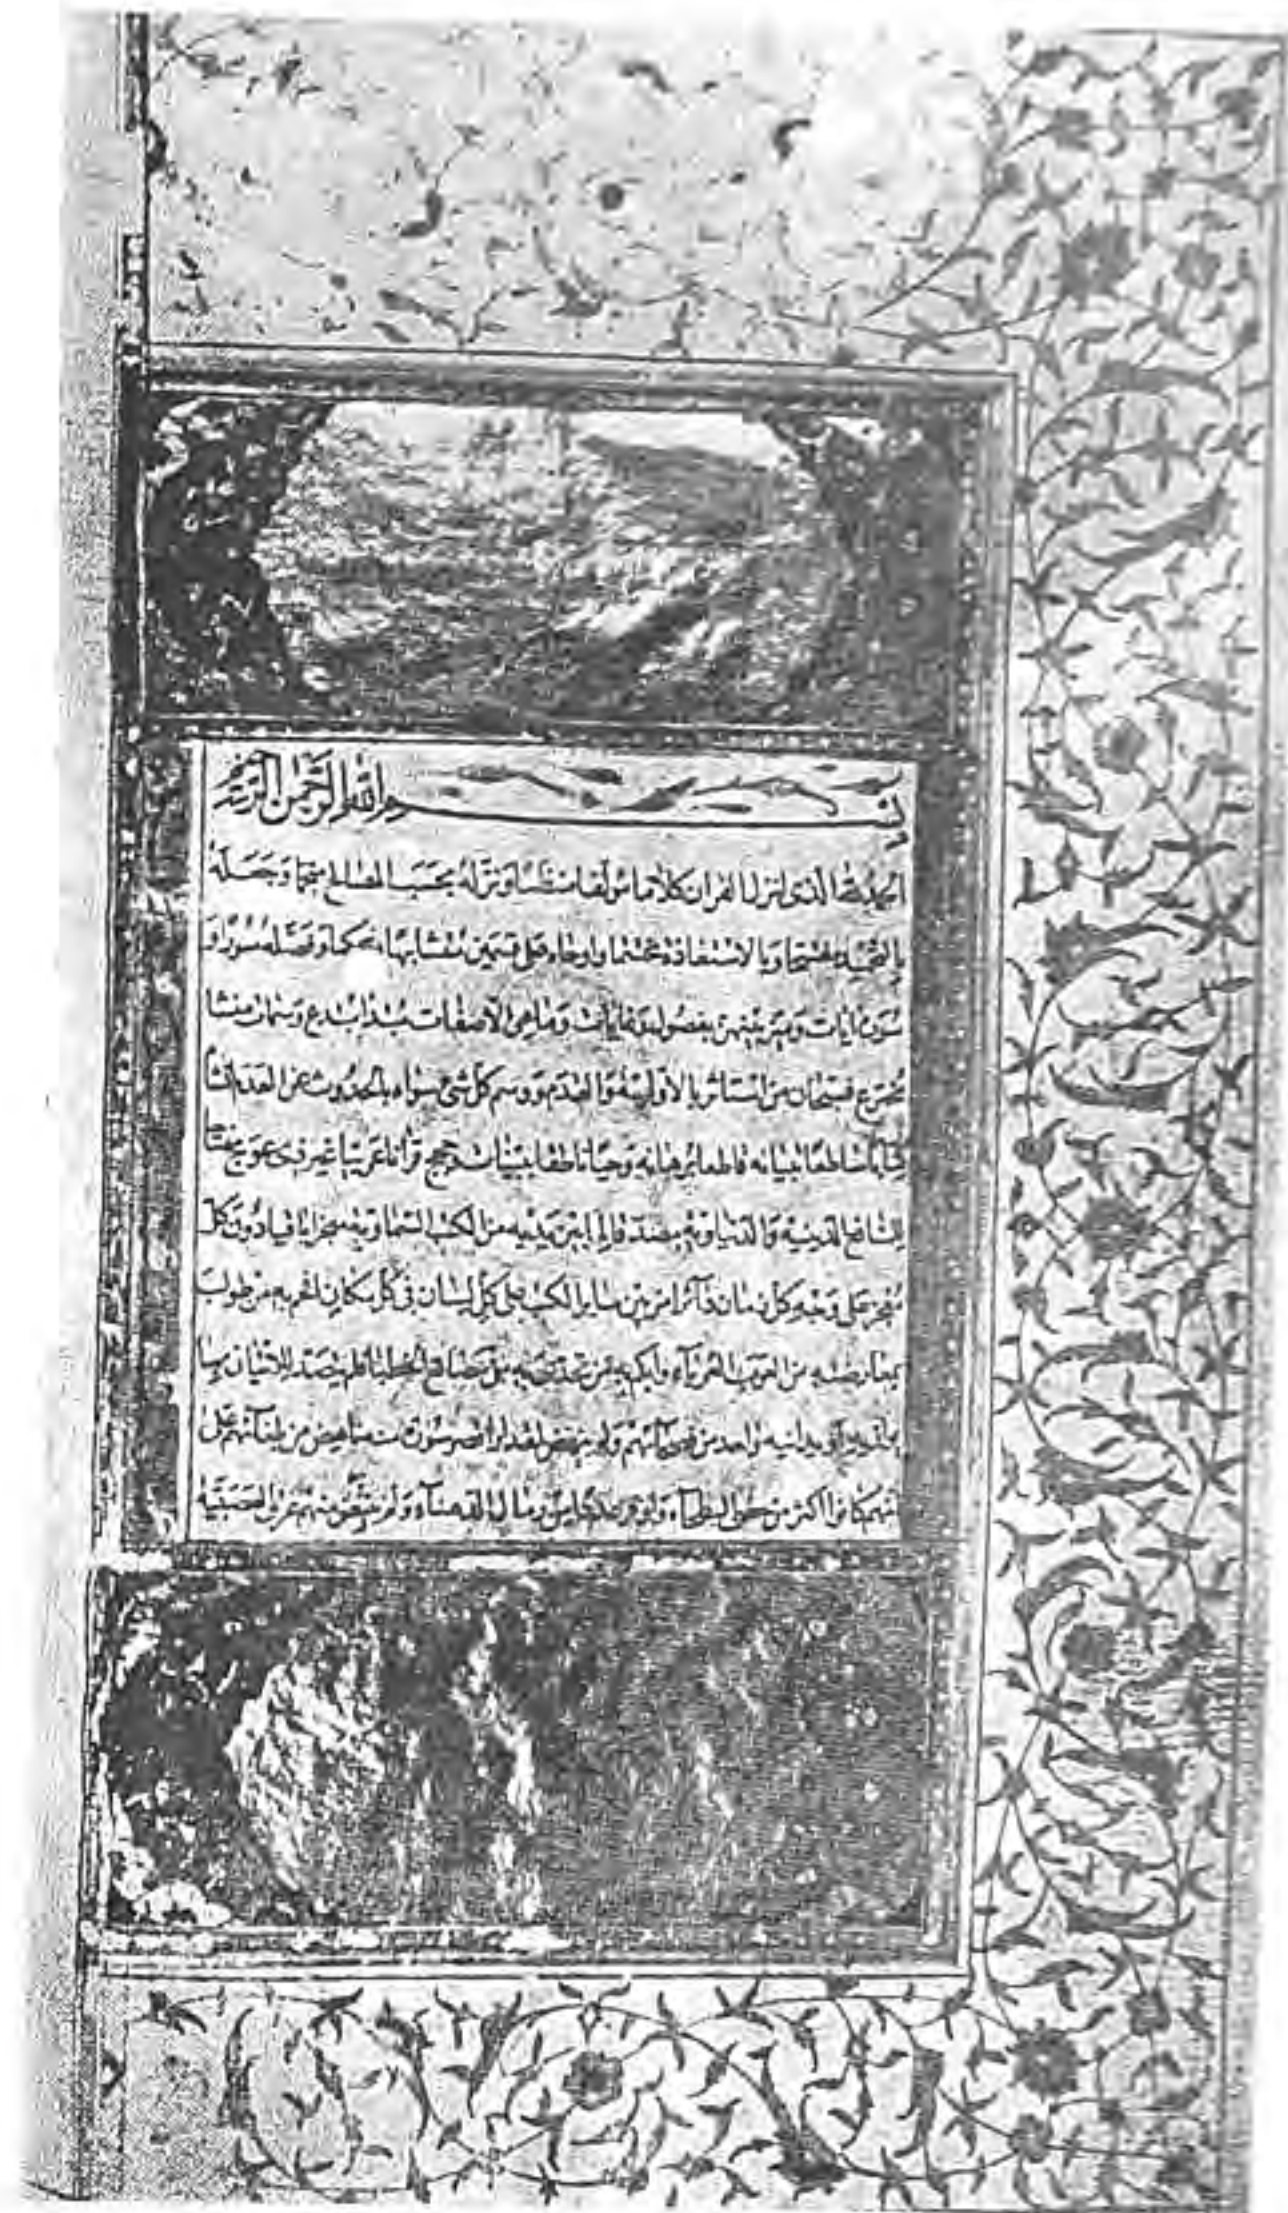 بسم الله الرحمن الرحيم
الحمد لله الذى انزل القرآن كلاما مؤلفا منظما ونزله بحسب المصالح منجما وجعله
بالتحميد مفتتحا وبالاستعاذة مختتما واوحاه على قسمين متشابها ومحكما وفصله سورا و
سوره آيات وميز بينهن بفصول وغايات وما هى الا صفات مبتدا مبتدع وسمات منشا
مخترع فسبحان من استاثر بالاولية والقدم ووسم كل شئ سواه بالحدوث عن العدم انشاه
كتابا ساطعا تبيانه قاطعا برهانه وحيا ناطقا ببينات وحجج قرآنا عربيا غير ذى عوج مفتاحا
للمنافع الدينية والدنياوية مصدقا لما بين يديه من الكتب السماوية معجزا باقيا دون كل
معجز على وجه كل زمان دائرا من بين سائر الكتب على كل لسان فى كل مكان افحم به من طولب
بمعارضته من العرب العرباء وابكم به من تحدى به من مصاقع الخطباء فلم يتصد للاتيان بما
يوازيه او يدانيه واحد من فصحائهم ولم ينهض لمقدار اقصر سورة منه ناهض من بلغائهم على
انهم كانوا اكثر من حصى البطحاء واوفر عددا من رمال الدهناء ولم ينبض منهم عرق العصبية